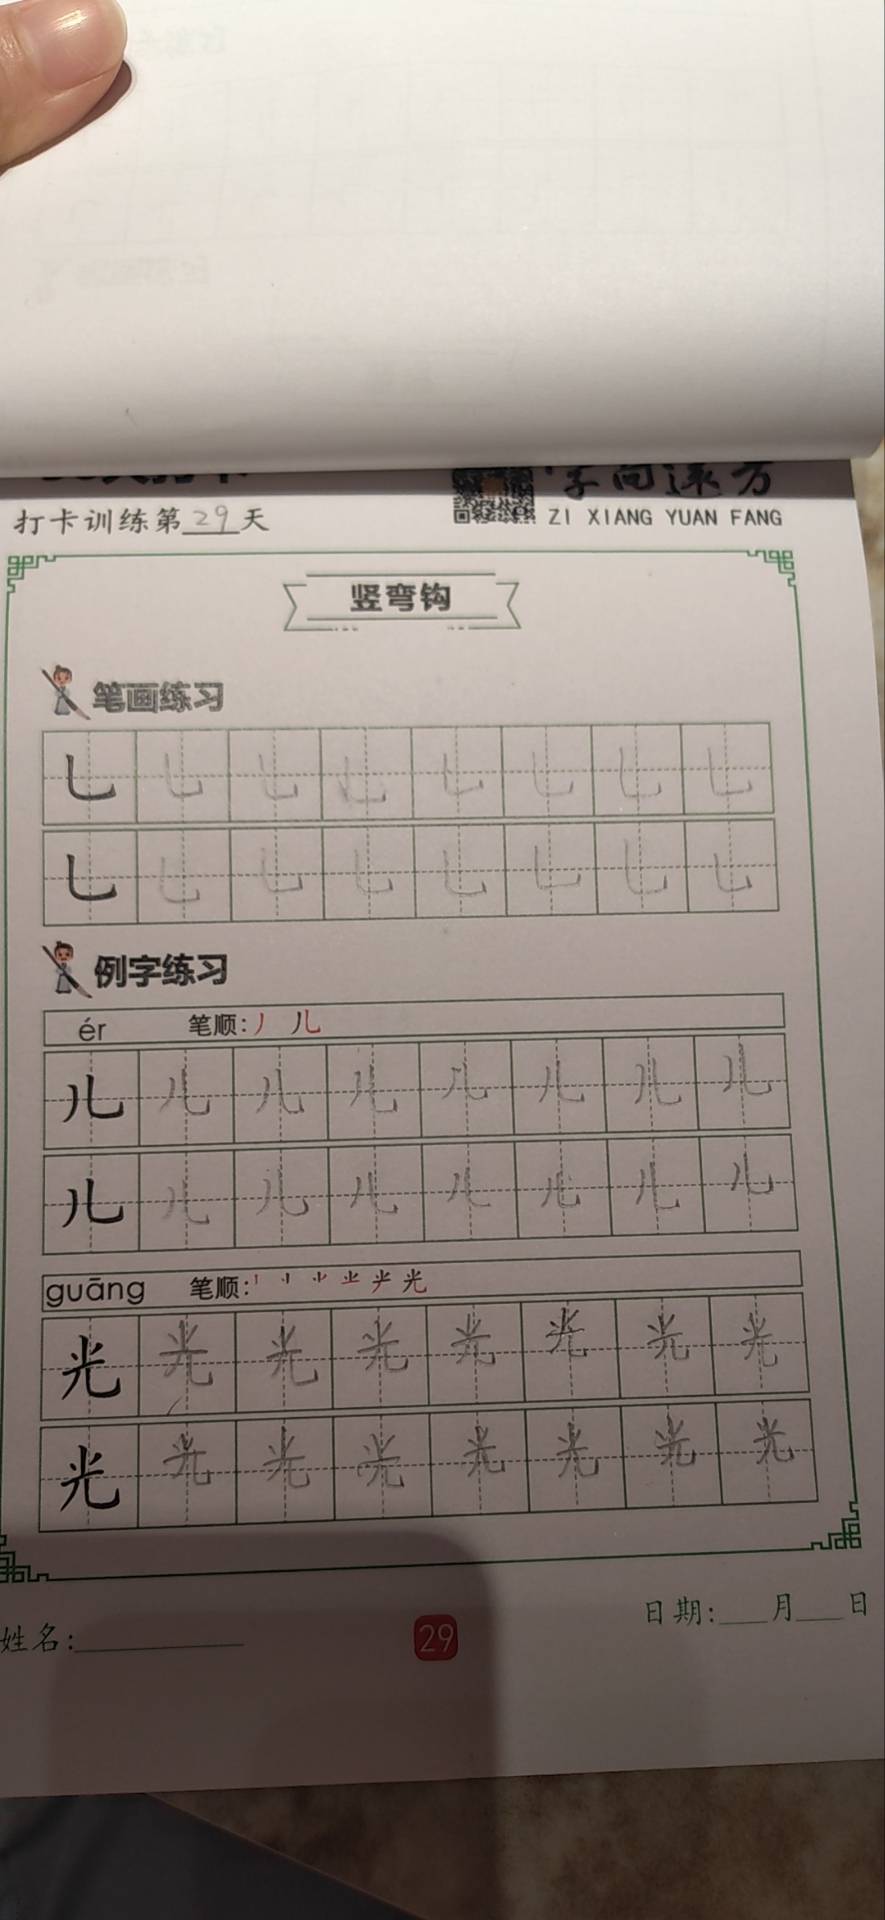 字向远方
打卡训练第29天 ZI XIANG YUAN FANG
竖弯钩
笔画练习
乚 乚 乚 乚 乚 乚 乚 乚
乚 乚 乚 乚 乚 乚 乚 乚
例字练习
ér 笔顺:丿 儿
儿 儿 儿 儿 儿 儿 儿 儿
儿 儿 儿 儿 儿 儿 儿 儿
guāng 笔顺:
光 光 光 光 光 光 光 光
光 光 光 光 光 光 光 光
姓名: 29 日期: 月 日